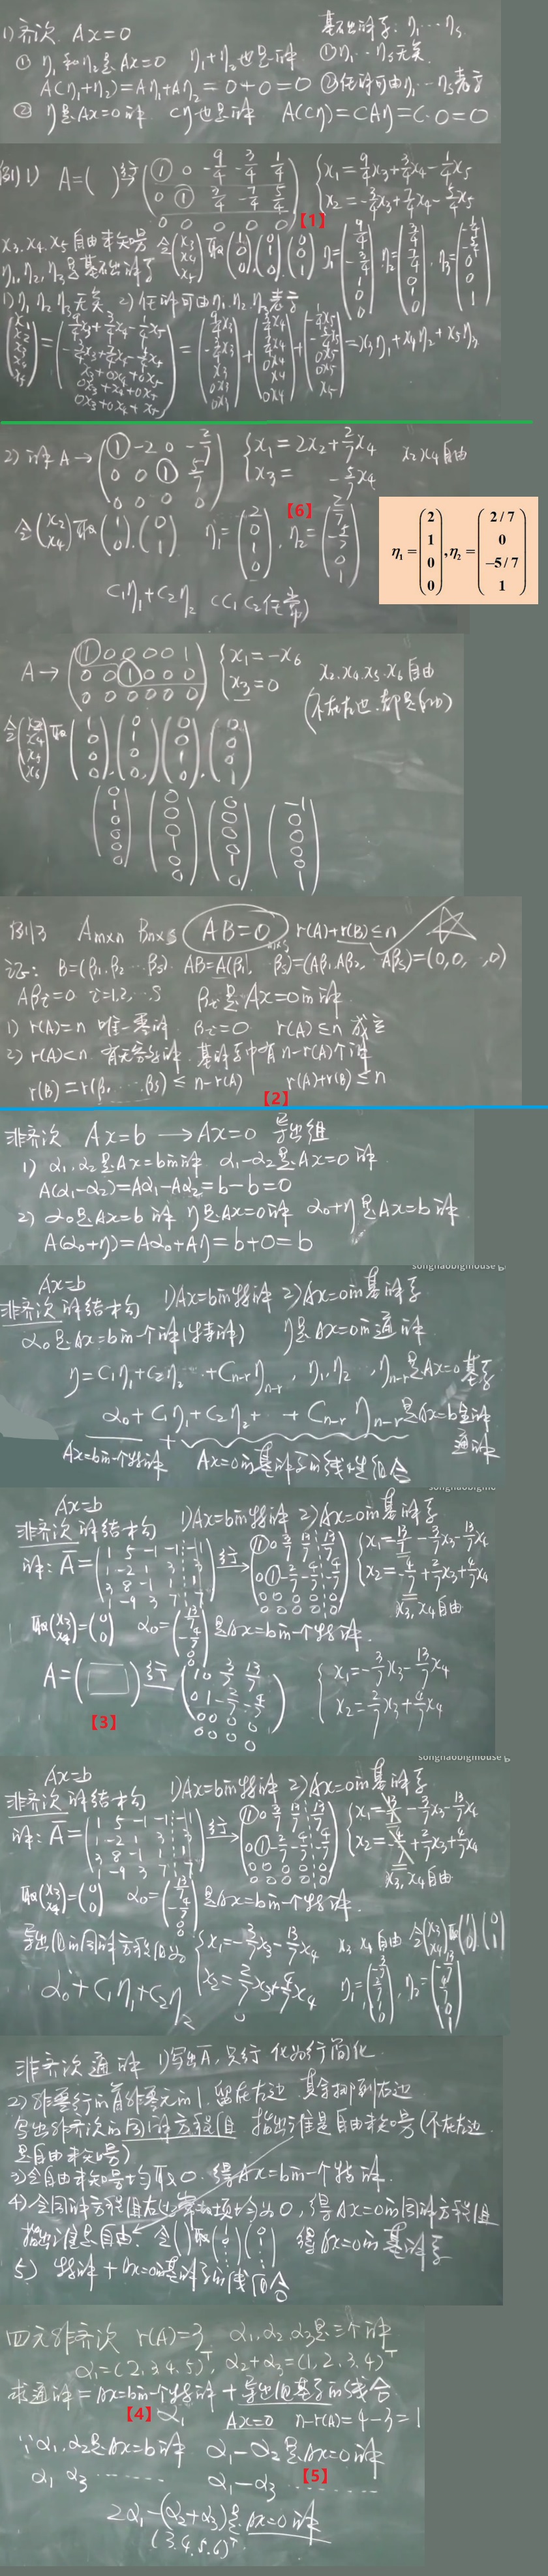 1) 齐次 Ax=0 基础解系: η₁…ηₛ
① η₁和η₂是Ax=0 η₁+η₂也是解 ①η₁…ηₛ无关
A(η₁+η₂)=Aη₁+Aη₂=0+0=0 ②任一解可由η₁…ηₛ表示
② η是Ax=0解 cη也是解 A(cη)=cAη=c·0=0
例1) A=( ) 行→ (1 0 -9/4 -3/4 1/4
0 1 3/4 -7/4 5/4
0 0 0 0 0) {x₁=9/4x₃+3/4x₄-1/4x₅
x₂=-3/4x₃+7/4x₄-5/4x₅
【1】
x₃,x₄,x₅自由未知量 令(x₃ x₄ x₅)取(1 0 0)(0 1 0)(0 0 1) η₁=(9/4 -3/4 1 0 0) η₂=(3/4 7/4 0 1 0), η₃=(-1/4 -5/4 0 0 1)
η₁,η₂,η₃是基础解系
1) η₁ η₂ η₃无关 2) 任一解可由η₁,η₂,η₃表示
=x₃η₁+x₄η₂+x₅η₃
2) 解 A→(1 -2 0 -2/7
0 0 1 5/7
0 0 0 0) {x₁=2x₂+2/7x₄
x₃= -5/7x₄ x₂x₄自由
【6】
令(x₂ x₄)取(1 0),(0 1) η₁=(2 0 1 0), η₂=(2/7 -5/7 0 1)
η₁=(2 1 0 0), η₂=(2/7 0 -5/7 1)
c₁η₁+c₂η₂ (c₁c₂任常)
A→(1 0 0 0 0 1
0 0 1 0 0 0
0 0 0 0 0 0) {x₁=-x₆
x₃=0 x₂,x₄,x₅,x₆自由
(不在左边,都是自由)
令(x₂ x₄ x₅ x₆)取(1 0 0 0),(0 1 0 0),(0 0 1 0),(0 0 0 1)
(0 1 0 0 0 0) (0 0 0 1 0 0) (0 0 0 0 1 0) (-1 0 0 0 0 1)
例3 Am×n Bn×s AB=0 r(A)+r(B)≤n
证: B=(β₁,β₂…βₛ) AB=A(β₁…βₛ)=(Aβ₁,Aβ₂,…Aβₛ)=(0,0,…,0)
Aβᵢ=0 i=1,2,…s βᵢ是Ax=0的解
1) r(A)=n 唯一零解 βᵢ=0 r(A)≤n 成立
2) r(A)<n 有无穷多解 基解系中有n-r(A)个解
r(B)=r(β₁…βₛ)≤n-r(A) r(A)+r(B)≤n
【2】
非齐次 Ax=b → Ax=0 导出组
1) α₁,α₂是Ax=b的解 α₁-α₂是Ax=0解
A(α₁-α₂)=Aα₁-Aα₂=b-b=0
2) α₀是Ax=b解 η是Ax=0解 α₀+η是Ax=b解
A(α₀+η)=Aα₀+Aη=b+0=b
songhaobigmouse
Ax=b
非齐次解结构 1)Ax=b的特解 2)Ax=0的基解系
α₀是Ax=b的一个解(特解) η是Ax=0的通解
η=c₁η₁+c₂η₂…+cₙ₋ᵣηₙ₋ᵣ, η₁,η₂…,ηₙ₋ᵣ是Ax=0基系
α₀+c₁η₁+c₂η₂+…+cₙ₋ᵣηₙ₋ᵣ是Ax=b全部解
通解
Ax=b的一个特解 + Ax=0的基解系的线性组合
Ax=b
非齐次解结构 1)Ax=b的特解 2)Ax=0的基解系
解: Ā=(1 5 -1 -1 -1
1 -2 1 3 3
3 8 -1 1 1
1 -9 3 7 7) 行→ (1 0 3/7 13/7 13/7
0 1 -2/7 -4/7 -4/7
0 0 0 0 0
0 0 0 0 0) {x₁=13/7-3/7x₃-13/7x₄
x₂=-4/7+2/7x₃+4/7x₄
x₃,x₄自由
取(x₃ x₄)=(0 0) α₀=(13/7 -4/7 0 0)是Ax=b的一个特解.
A=( ) 行→ (1 0 3/7 13/7
0 1 -2/7 -4/7
0 0 0 0
0 0 0 0) {x₁=-3/7x₃-13/7x₄
x₂=2/7x₃+4/7x₄
【3】
songhaobigmouse
Ax=b
非齐次解结构 1)Ax=b的特解 2)Ax=0的基解系
解: Ā=(1 5 -1 -1 -1
1 -2 1 3 3
3 8 -1 1 1
1 -9 3 7 7) 行→ (1 0 3/7 13/7 13/7
0 1 -2/7 -4/7 -4/7
0 0 0 0 0
0 0 0 0 0) {x₁=13/7-3/7x₃-13/7x₄
x₂=-4/7+2/7x₃+4/7x₄
x₃,x₄自由
取(x₃ x₄)=(0 0) α₀=(13/7 -4/7 0 0)是Ax=b的一个特解.
导出组的同解方程组为 {x₁=-3/7x₃-13/7x₄
x₂=2/7x₃+4/7x₄ x₃ x₄自由 令(x₃ x₄)取(1 0),(0 1)
α₀+c₁η₁+c₂η₂ η₁=(-3/7 2/7 1 0), η₂=(-13/7 4/7 0 1)
非齐次通解 1)写出Ā,只行 化为行简化
2)非零行的首非零元的1,留在左边,其余挪到右边
写出非齐次的同解方程组 指出谁是自由未知量(不在左边
是自由未知量)
3)令自由未知量均取0,得Ax=b的一个特解.
4)令同解方程组右边常数项均为0,得Ax=0的同解方程组
指出谁是自由,令( )取(1 0 ⋮)(0 1 ⋮) 得Ax=0的基解系
5) 特解+Ax=0基解系的线组合
四元非齐次 r(A)=3 α₁,α₂,α₃是三个解
α₁=(2,3,4,5)ᵀ, α₂+α₃=(1,2,3,4)ᵀ
求通解=Ax=b的一个特解+导出组基系的线组合
【4】α₁ Ax=0 n-r(A)=4-3=1
∵α₁,α₂是Ax=b解 α₁-α₂是Ax=0解
α₁ α₃ …… α₁-α₃ ……
【5】
2α₁-(α₂+α₃)是Ax=0解
(3,4,5,6)ᵀ